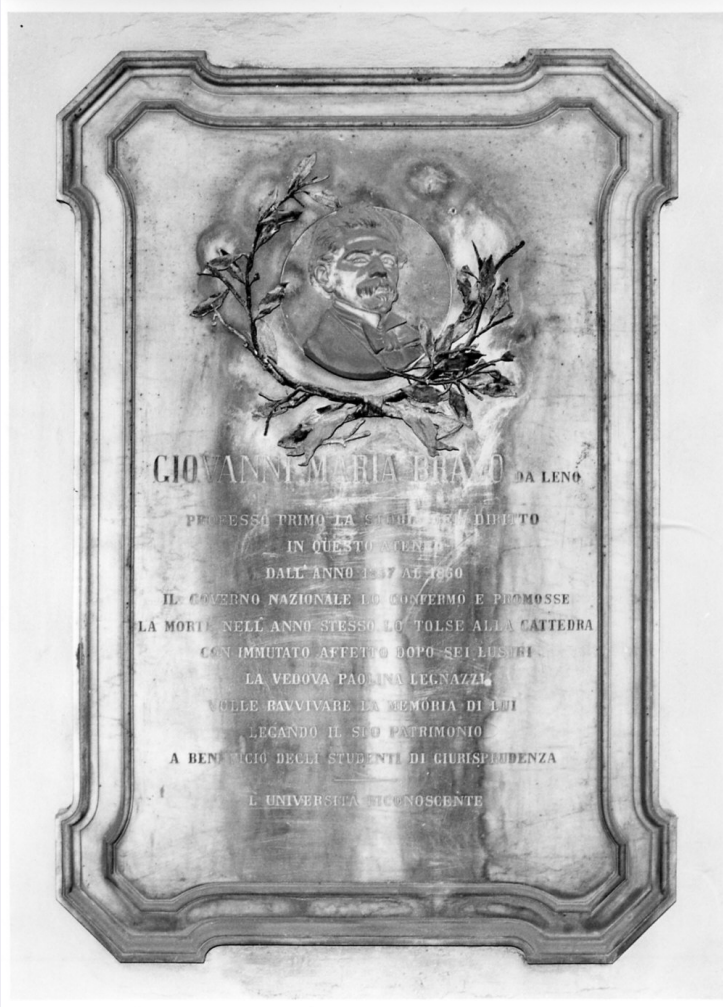 GIOVANNI MARIA BRAVO DA LENO
PROFESSÒ PRIMO LA DIRITTO
IN QUESTO ATENEO
DALL' ANNO AL 1860
IL GOVERNO NAZIONALE LO CONFERMÒ E PROMOSSE
LA MORTE NELL' ANNO STESSO LO TOLSE ALLA CATTEDRA
CON IMMUTATO AFFETTO DOPO SEI LUSTRI
LA VEDOVA PAOLINA LEGNAZZI
VOLLE RAVVIVARE LA MEMORIA DI LUI
LEGANDO IL SUO PATRIMONIO
A BENEFICIO DEGLI STUDENTI DI GIURISPRUDENZA
L' UNIVERSITÀ RICONOSCENTE